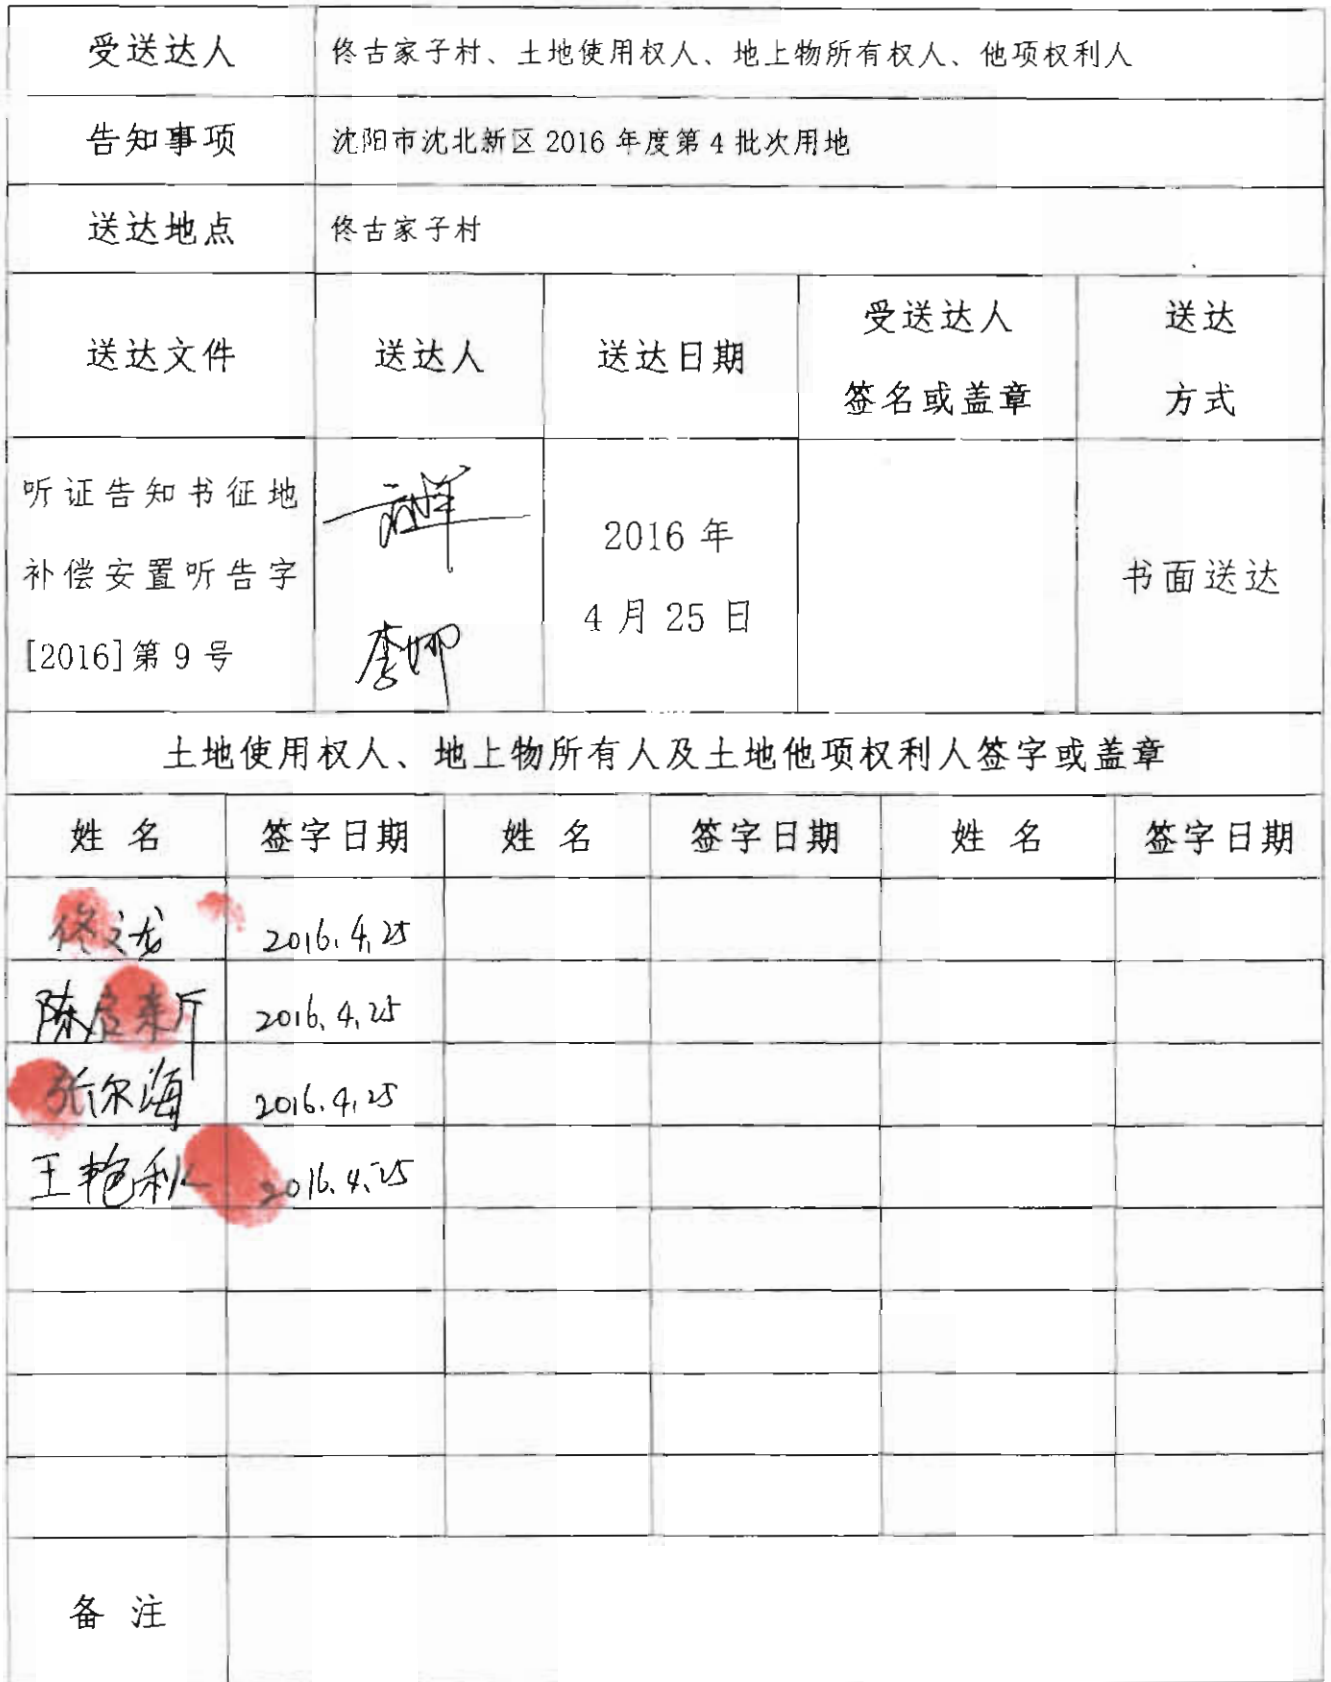 受送达人
佟古家子村、土地使用权人、地上物所有权人、他项权利人
告知事项
沈阳市沈北新区 2016 年度第 4 批次用地
送达地点
佟古家子村
送达文件
送达人
送达日期
受送达人
签名或盖章
送达
方式
听证告知书征地
补偿安置听告字
[2016]第 9 号
李娜
2016 年
4 月 25 日
书面送达
土地使用权人、地上物所有人及土地他项权利人签字或盖章
姓 名
签字日期
姓 名
签字日期
姓 名
签字日期
佟文龙
2016.4.25
2016.4.25
张尔海
2016.4.25
王艳秋
2016.4.25
备 注